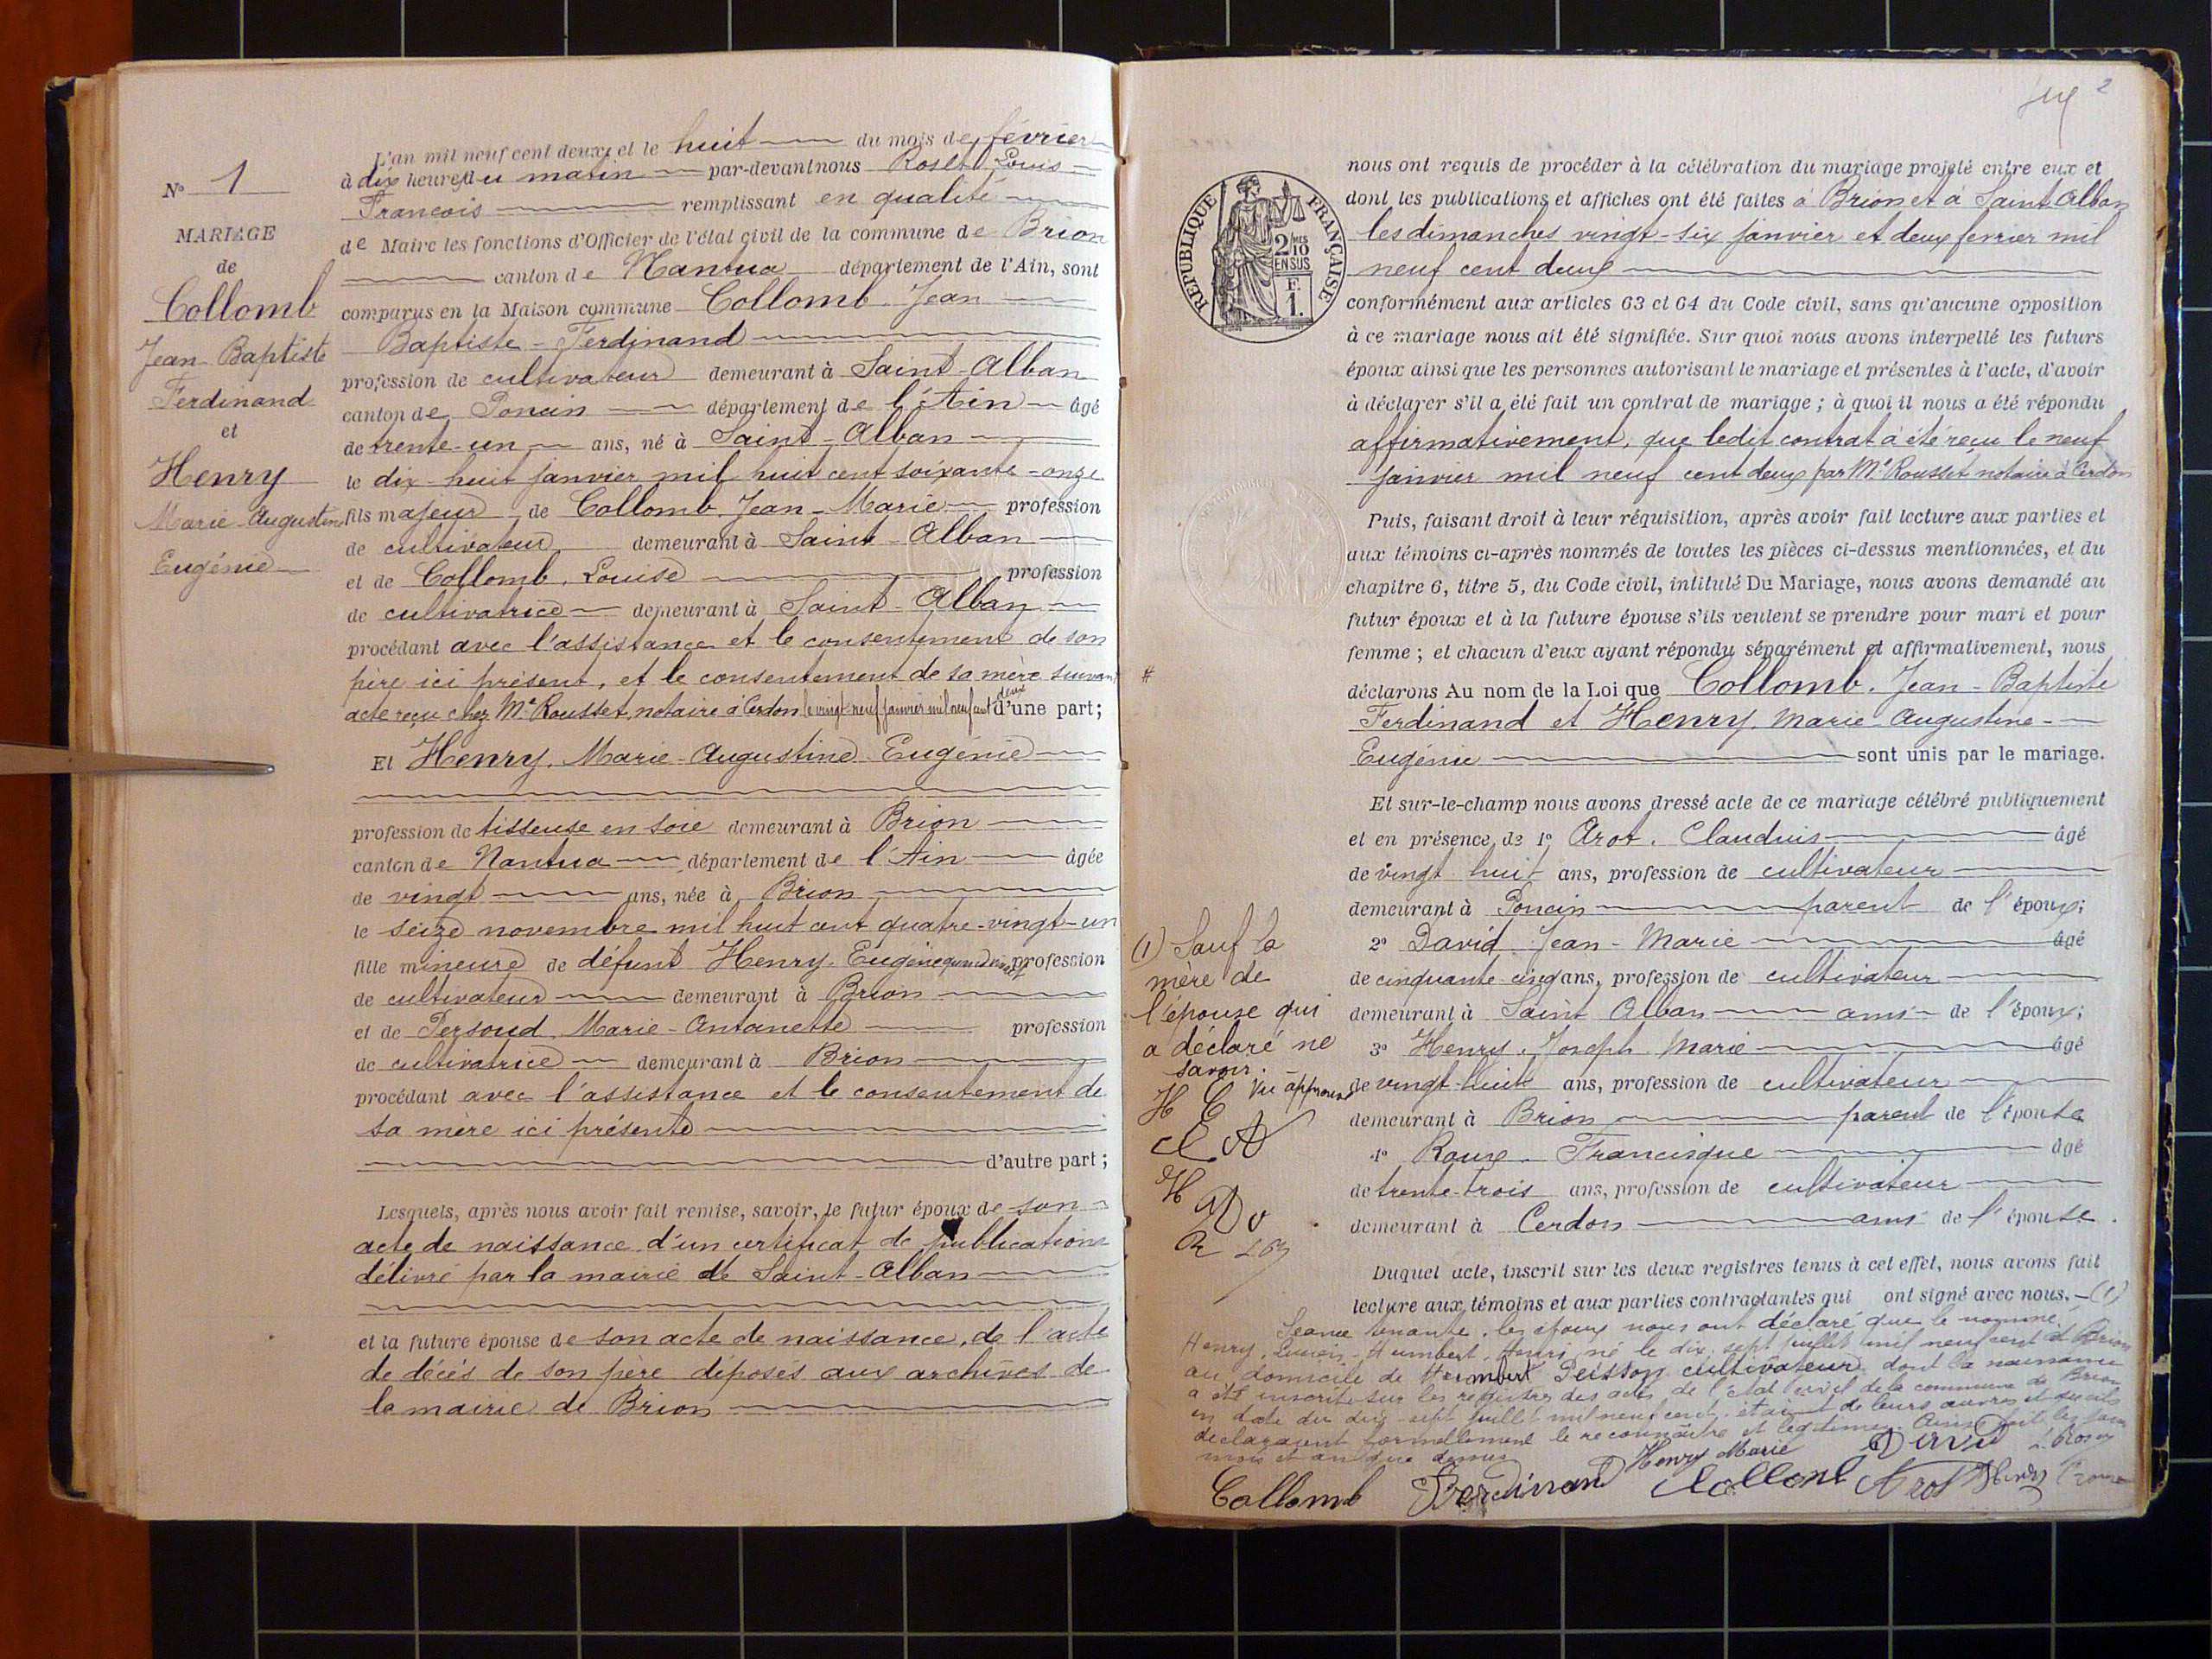 N° 1
MARIAGE
de
Collomb
Jean Baptiste
Ferdinand
et
Henry
Marie Augustine
Eugénie
L'an mil neuf cent deux, et le huit du mois de février
à dix heures du matin par-devant nous Roset Louis
François remplissant en qualité
de Maire les fonctions d'Officier de l'état civil de la commune de Brion
canton de Nantua département de l'Ain, sont
comparus en la Maison commune Collomb Jean
Baptiste - Ferdinand
profession de cultivateur demeurant à Saint-Alban
canton de Poncin département de l'Ain âgé
de trente-un ans, né à Saint-Alban
le dix-huit janvier mil huit cent soixante-onze
fils majeur de Collomb Jean-Marie profession
de cultivateur demeurant à Saint-Alban
et de Collomb. Louise profession
de cultivatrice demeurant à Saint-Alban
procédant avec l'assistance et le consentement de son
père ici présent, et le consentement de sa mère suivant
acte reçu chez Me Rousset, notaire à Cerdon le vingt-neuf janvier mil neuf cent deux d'une part;
Et Henry. Marie-Augustine Eugénie
profession de tisseuse en soie demeurant à Brion
canton de Nantua département de l'Ain âgée
de vingt ans, née à Brion
le seize novembre mil huit cent quatre-vingt-un
fille mineure de défunt Henry. Eugène quand vivait profession
de cultivateur demeurant à Brion
et de Persoud Marie-Antoinette profession
de cultivatrice demeurant à Brion
procédant avec l'assistance et le consentement de
sa mère ici présente
d'autre part;
Lesquels, après nous avoir fait remise, savoir, le futur époux de son
acte de naissance d'un certificat de publications
délivré par la mairie de Saint-Alban
et la future épouse de son acte de naissance, de l'acte
de décès de son père déposés aux archives de
la mairie de Brion
2
RÉPUBLIQUE FRANÇAISE
2/10 MES
EN SUS
F.
1.
nous ont requis de procéder à la célébration du mariage projeté entre eux et
dont les publications et affiches ont été faites à Brion et à Saint Alban
les dimanches vingt-six janvier et deux fevrier mil
neuf cent deux
conformément aux articles 63 et 64 du Code civil, sans qu'aucune opposition
à ce mariage nous ait été signifiée. Sur quoi nous avons interpellé les futurs
époux ainsi que les personnes autorisant le mariage et présentes à l'acte, d'avoir
à déclarer s'il a été fait un contrat de mariage; à quoi il nous a été répondu
affirmativement, que ledit contrat a été reçu le neuf
janvier mil neuf cent deux par Me Rousset, notaire à Cerdon
Puis, faisant droit à leur réquisition, après avoir fait lecture aux parties et
aux témoins ci-après nommés de toutes les pièces ci-dessus mentionnées, et du
chapitre 6, titre 5, du Code civil, intitulé Du Mariage, nous avons demandé au
futur époux et à la future épouse s'ils veulent se prendre pour mari et pour
femme; et chacun d'eux ayant répondu séparément et affirmativement, nous
déclarons Au nom de la Loi que Collomb. Jean-Baptiste
Ferdinand et Henry. Marie Augustine
Eugénie sont unis par le mariage.
Et sur-le-champ nous avons dressé acte de ce mariage célébré publiquement
et en présence de 1° Arot. Claudius âgé
de vingt huit ans, profession de cultivateur
demeurant à Poncin parent de l'époux;
2° David Jean-Marie âgé
de cinquante cinq ans, profession de cultivateur
demeurant à Saint Alban ami de l'époux;
3° Henry. Joseph Marie âgé
de vingt-huit ans, profession de cultivateur
demeurant à Brion parent de l'épouse
4° Roux. Francisque âgé
de trente-trois ans, profession de cultivateur
demeurant à Cerdon ami de l'épouse.
Duquel acte, inscrit sur les deux registres tenus à cet effet, nous avons fait
lecture aux témoins et aux parties contractantes qui ont signé avec nous. (1)
Séance tenante, les époux nous ont déclaré que le nommé
Henry, Lucien-Humbert, Henri né le dix-sept juillet mil neuf cent à Brion
au domicile de Humbert Peisson cultivateur dont la naissance
a été inscrite sur les registres des actes de l'état civil de la commune de Brion
en date du dix-sept juillet mil neuf cent, étaient de leurs œuvres et qu'ils
déclaraient formellement le reconnaître et légitimer. Ainsi fait les jour
mois et an que dessus
Henry Marie David L. Roset
Collomb Ferdinand Collomb Arot Henry Roux
(1) Sauf la
mère de
l'épouse qui
a déclaré ne
savoir.
Vu approuvé
H E
C A
H
D
R